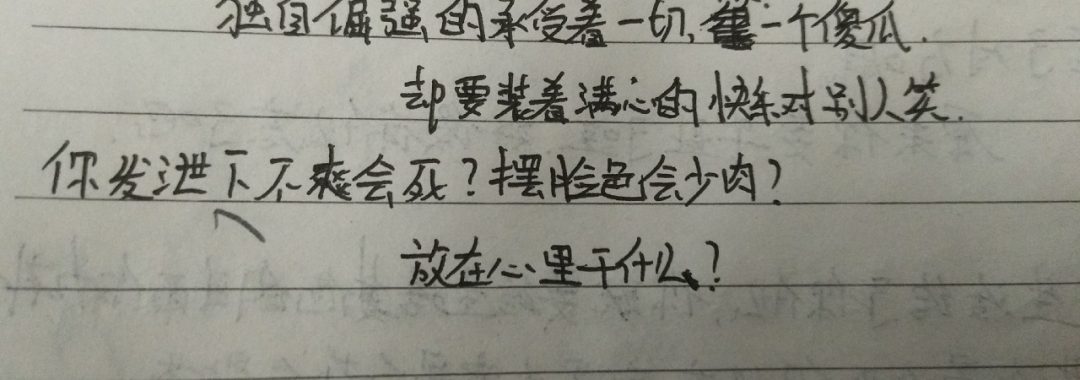 独自倔强的承受着一切,一个傻瓜.
却要装着满心的快乐对别人笑.
你发泄下不爽会死?摆脸色会少肉?
放在心里干什么?